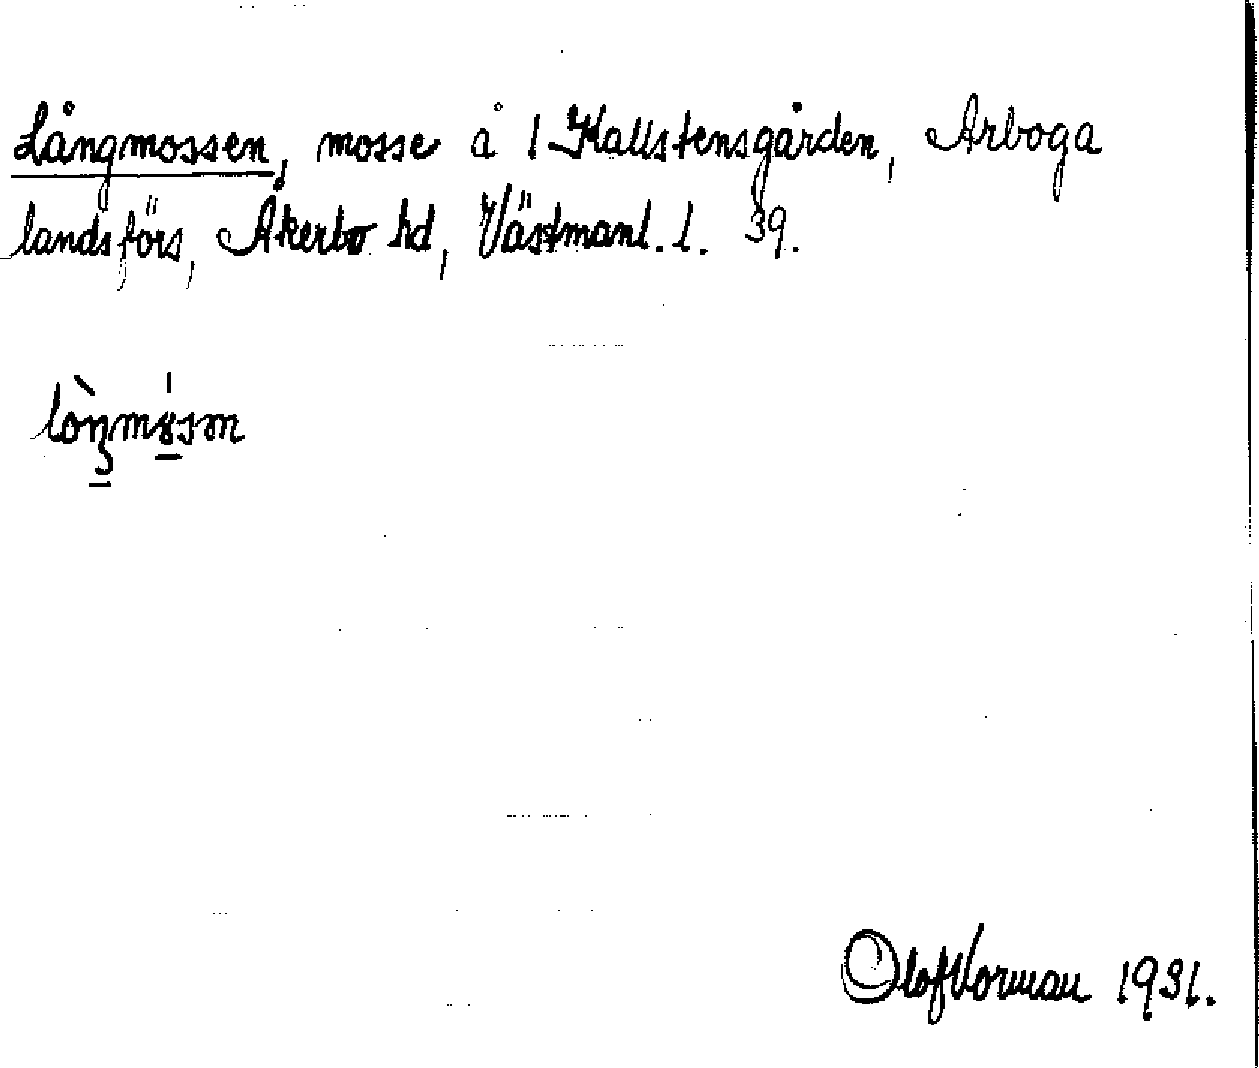 Långmossen, mosse å 1 Kallstensgården, Arboga
landsförs, Åkerbo hd, Västmanl. l. 39.
Olof Vorman 1931.